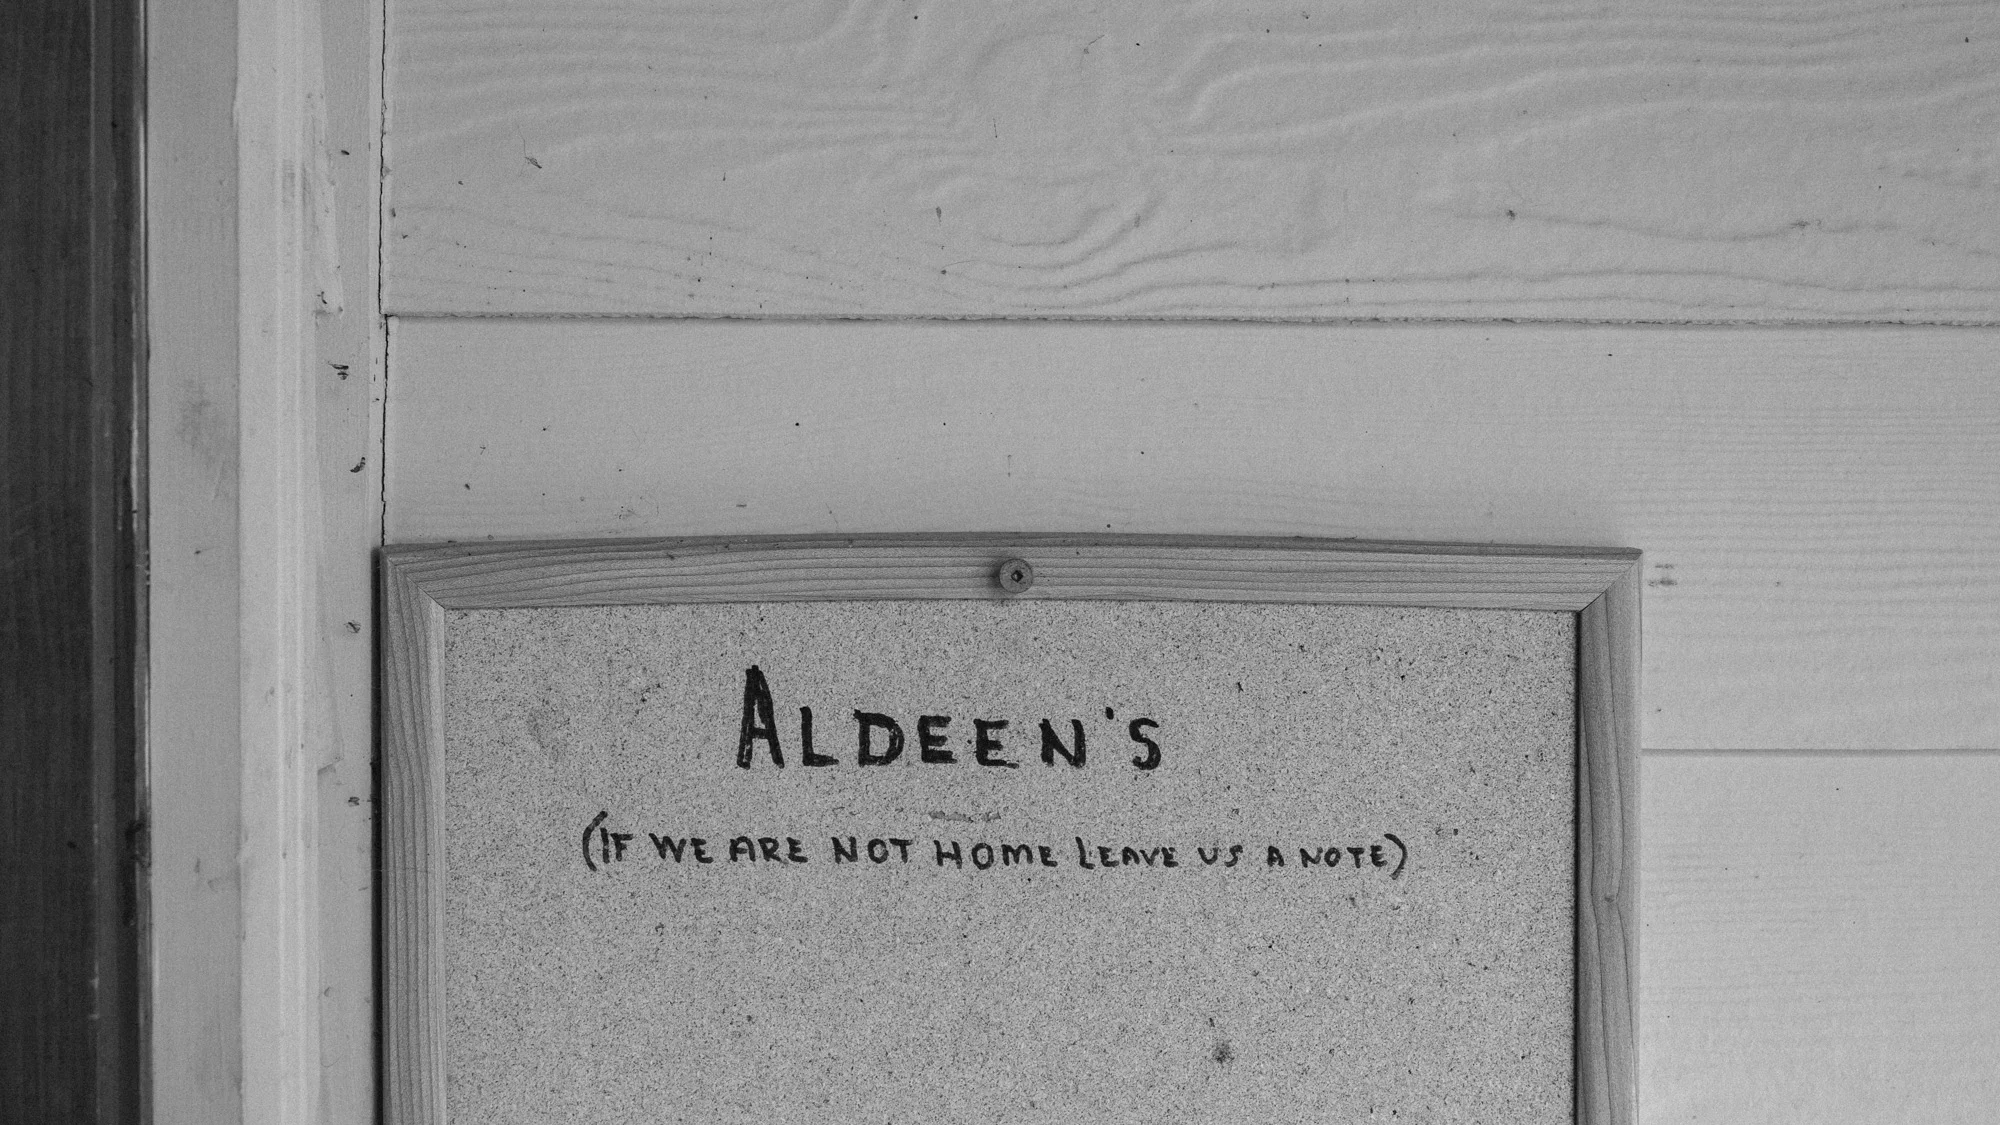 ALDEEN'S
(IF WE ARE NOT HOME LEAVE US A NOTE)